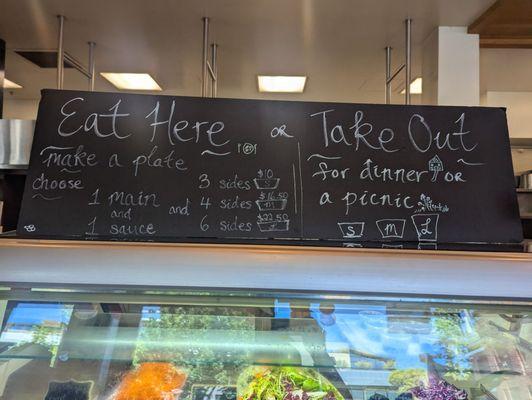 Eat Here
OR
Take Out
make a plate
choose
1 main
and
1 sauce
and
3 sides $10 S
4 sides $16.50 M
6 sides $22.50 L
for dinner OR
a picnic
S M L